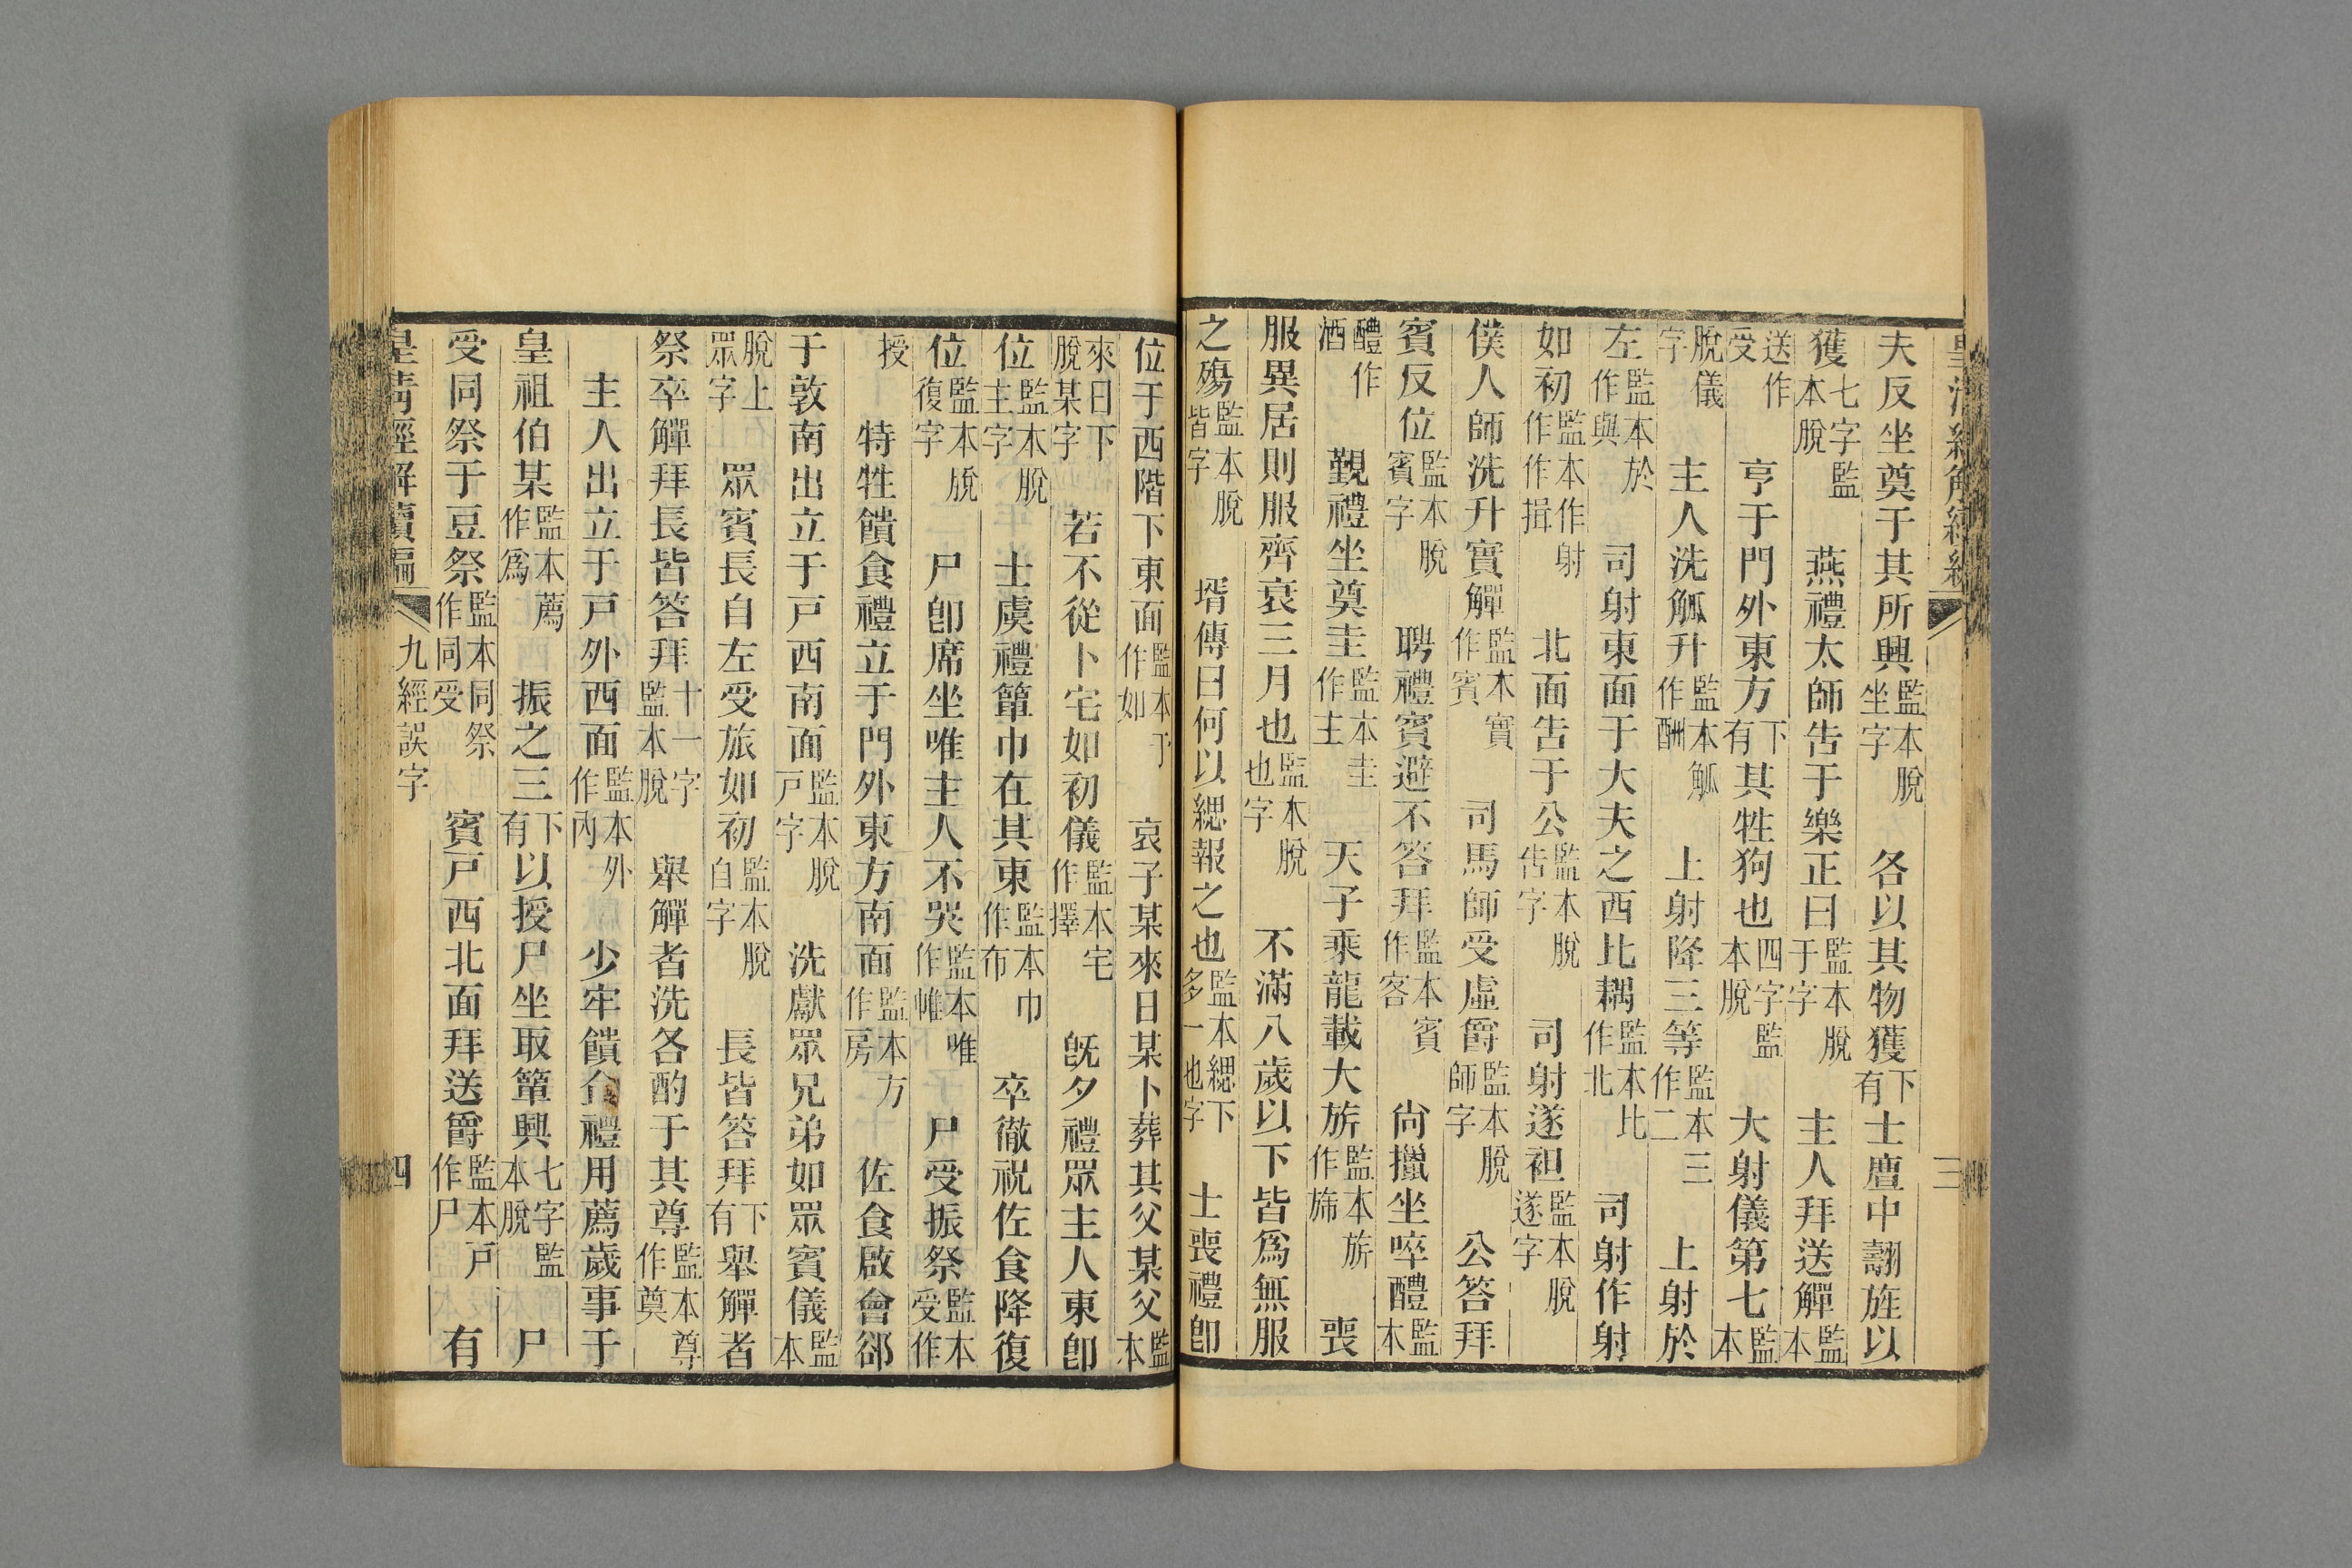 夫反坐奠于其所興監本脫坐字　各以其物獲下有士鹿中翿旌以
獲七字監本脫　燕禮太師告于樂正曰監本脫于字　主人拜送觶監本
送作受　亨于門外東方下有其牲狗也四字監本脫　大射儀第七監本
脫儀字　主人洗觚升監本觚作酬　上射降三等監本三作二　上射於
左監本於作與　司射東面于大夫之西比耦監本比作北　司射作射
如初監本作射作作揖　北面告于公監本脫告字　司射遂袒監本脫遂字
僕人師洗升實觶監本實作賓　司馬師受虛爵監本脫師字　公答拜
賓反位監本脫賓字　聘禮賓避不答拜監本賓作客　尙擸坐啐醴監本
醴作酒　覲禮坐奠圭監本圭作主　天子乘龍載大旂監本旂作旆　喪
服異居則服齊衰三月也監本脫也字　不滿八歲以下皆爲無服
之殤監本脫皆字　壻傳曰何以緦報之也監本緦下多一也字　士喪禮卽
位于西階下東面監本于作如　哀子某來日某卜葬其父某父監本
來日下脫某字　若不從卜宅如初儀監本宅作擇　旣夕禮眾主人東卽
位監本脫主字　士虞禮簞巾在其東監本巾作布　卒徹祝佐食降復
位監本脫復字　尸卽席坐唯主人不哭監本唯作帷　尸受振祭監本受作
授　特牲饋食禮立于門外東方南面監本方作房　佐食啟會郤
于敦南出立于戸西南面監本脫戸字　洗獻眾兄弟如眾賓儀監本
脫上眾字　眾賓長自左受旅如初監本脫自字　長皆答拜下有舉觶者
祭卒觶拜長皆答拜十一字監本脫　舉觶者洗各酌于其尊監本尊作奠
主人出立于戸外西面監本外作內　少牢饋食禮用薦歲事于
皇祖伯某監本薦作爲　振之三下有以授尸坐取簞興七字監本脫　尸
受同祭于豆祭監本同祭作同受　賓戸西北面拜送爵監本戸作尸　有
皇清經解續編　九經誤字　四